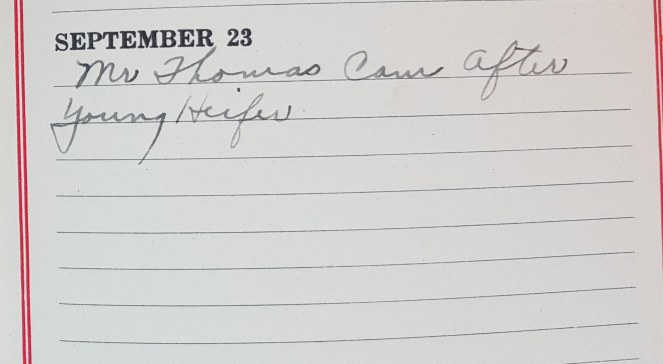 SEPTEMBER 23
Mr Thomas Came After
Young Heifer